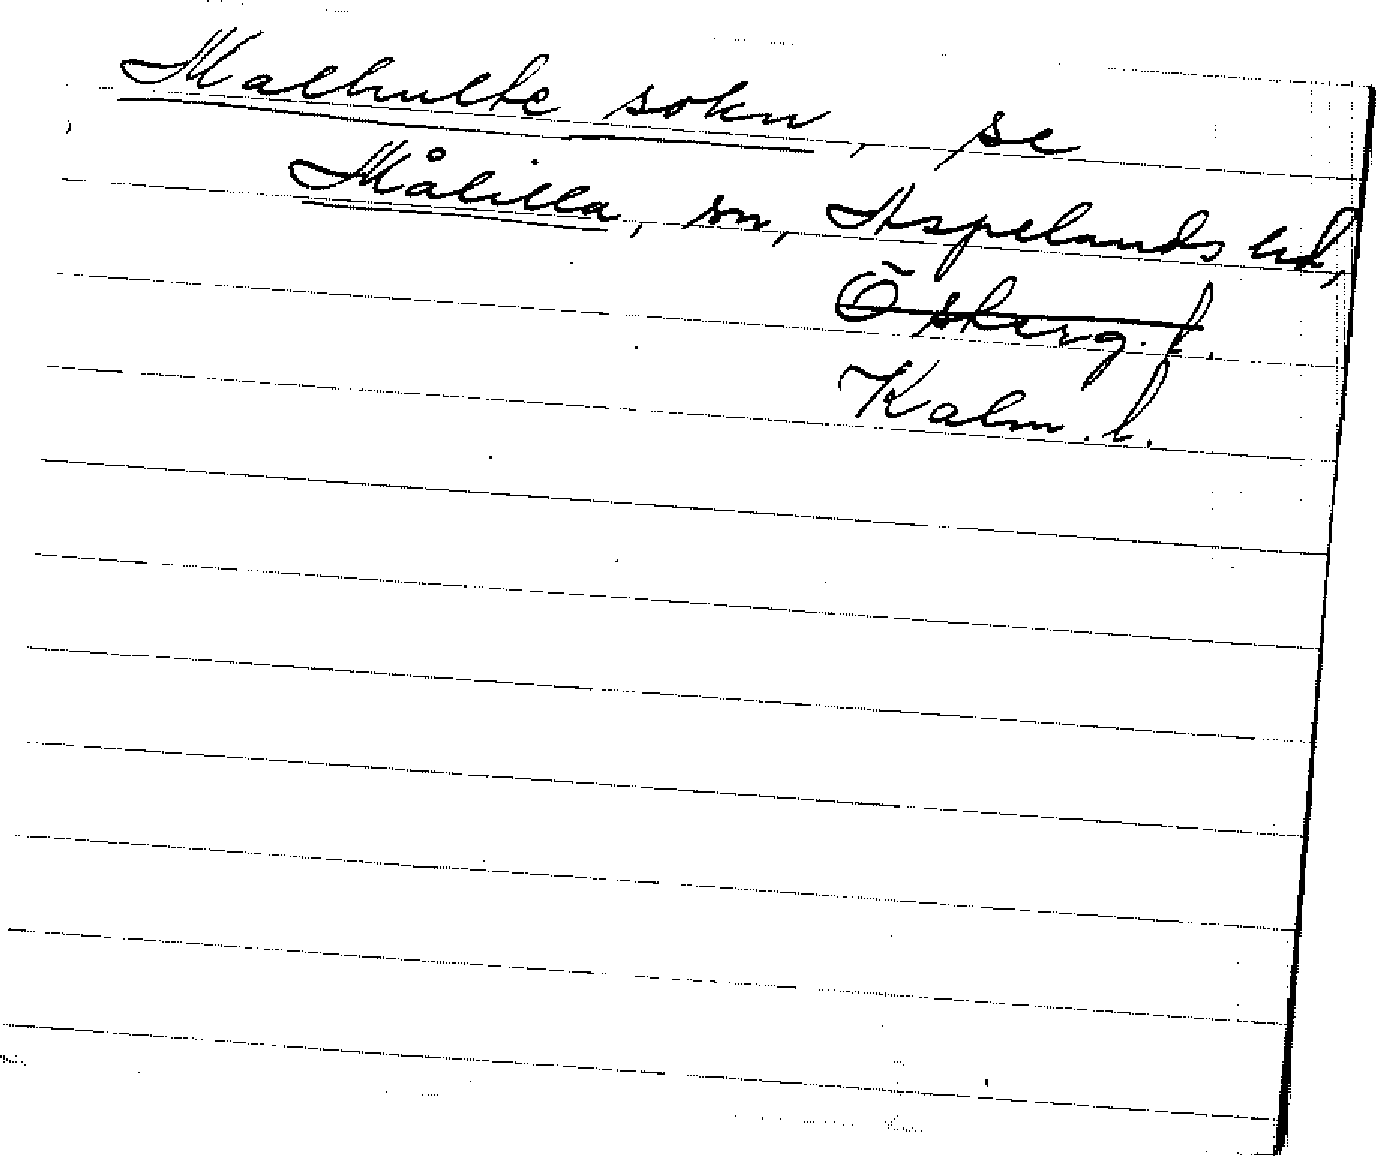 Malhulte sokn, se
Målilla, sn, Aspelands hd,
Österg. l.
Kalm. l.